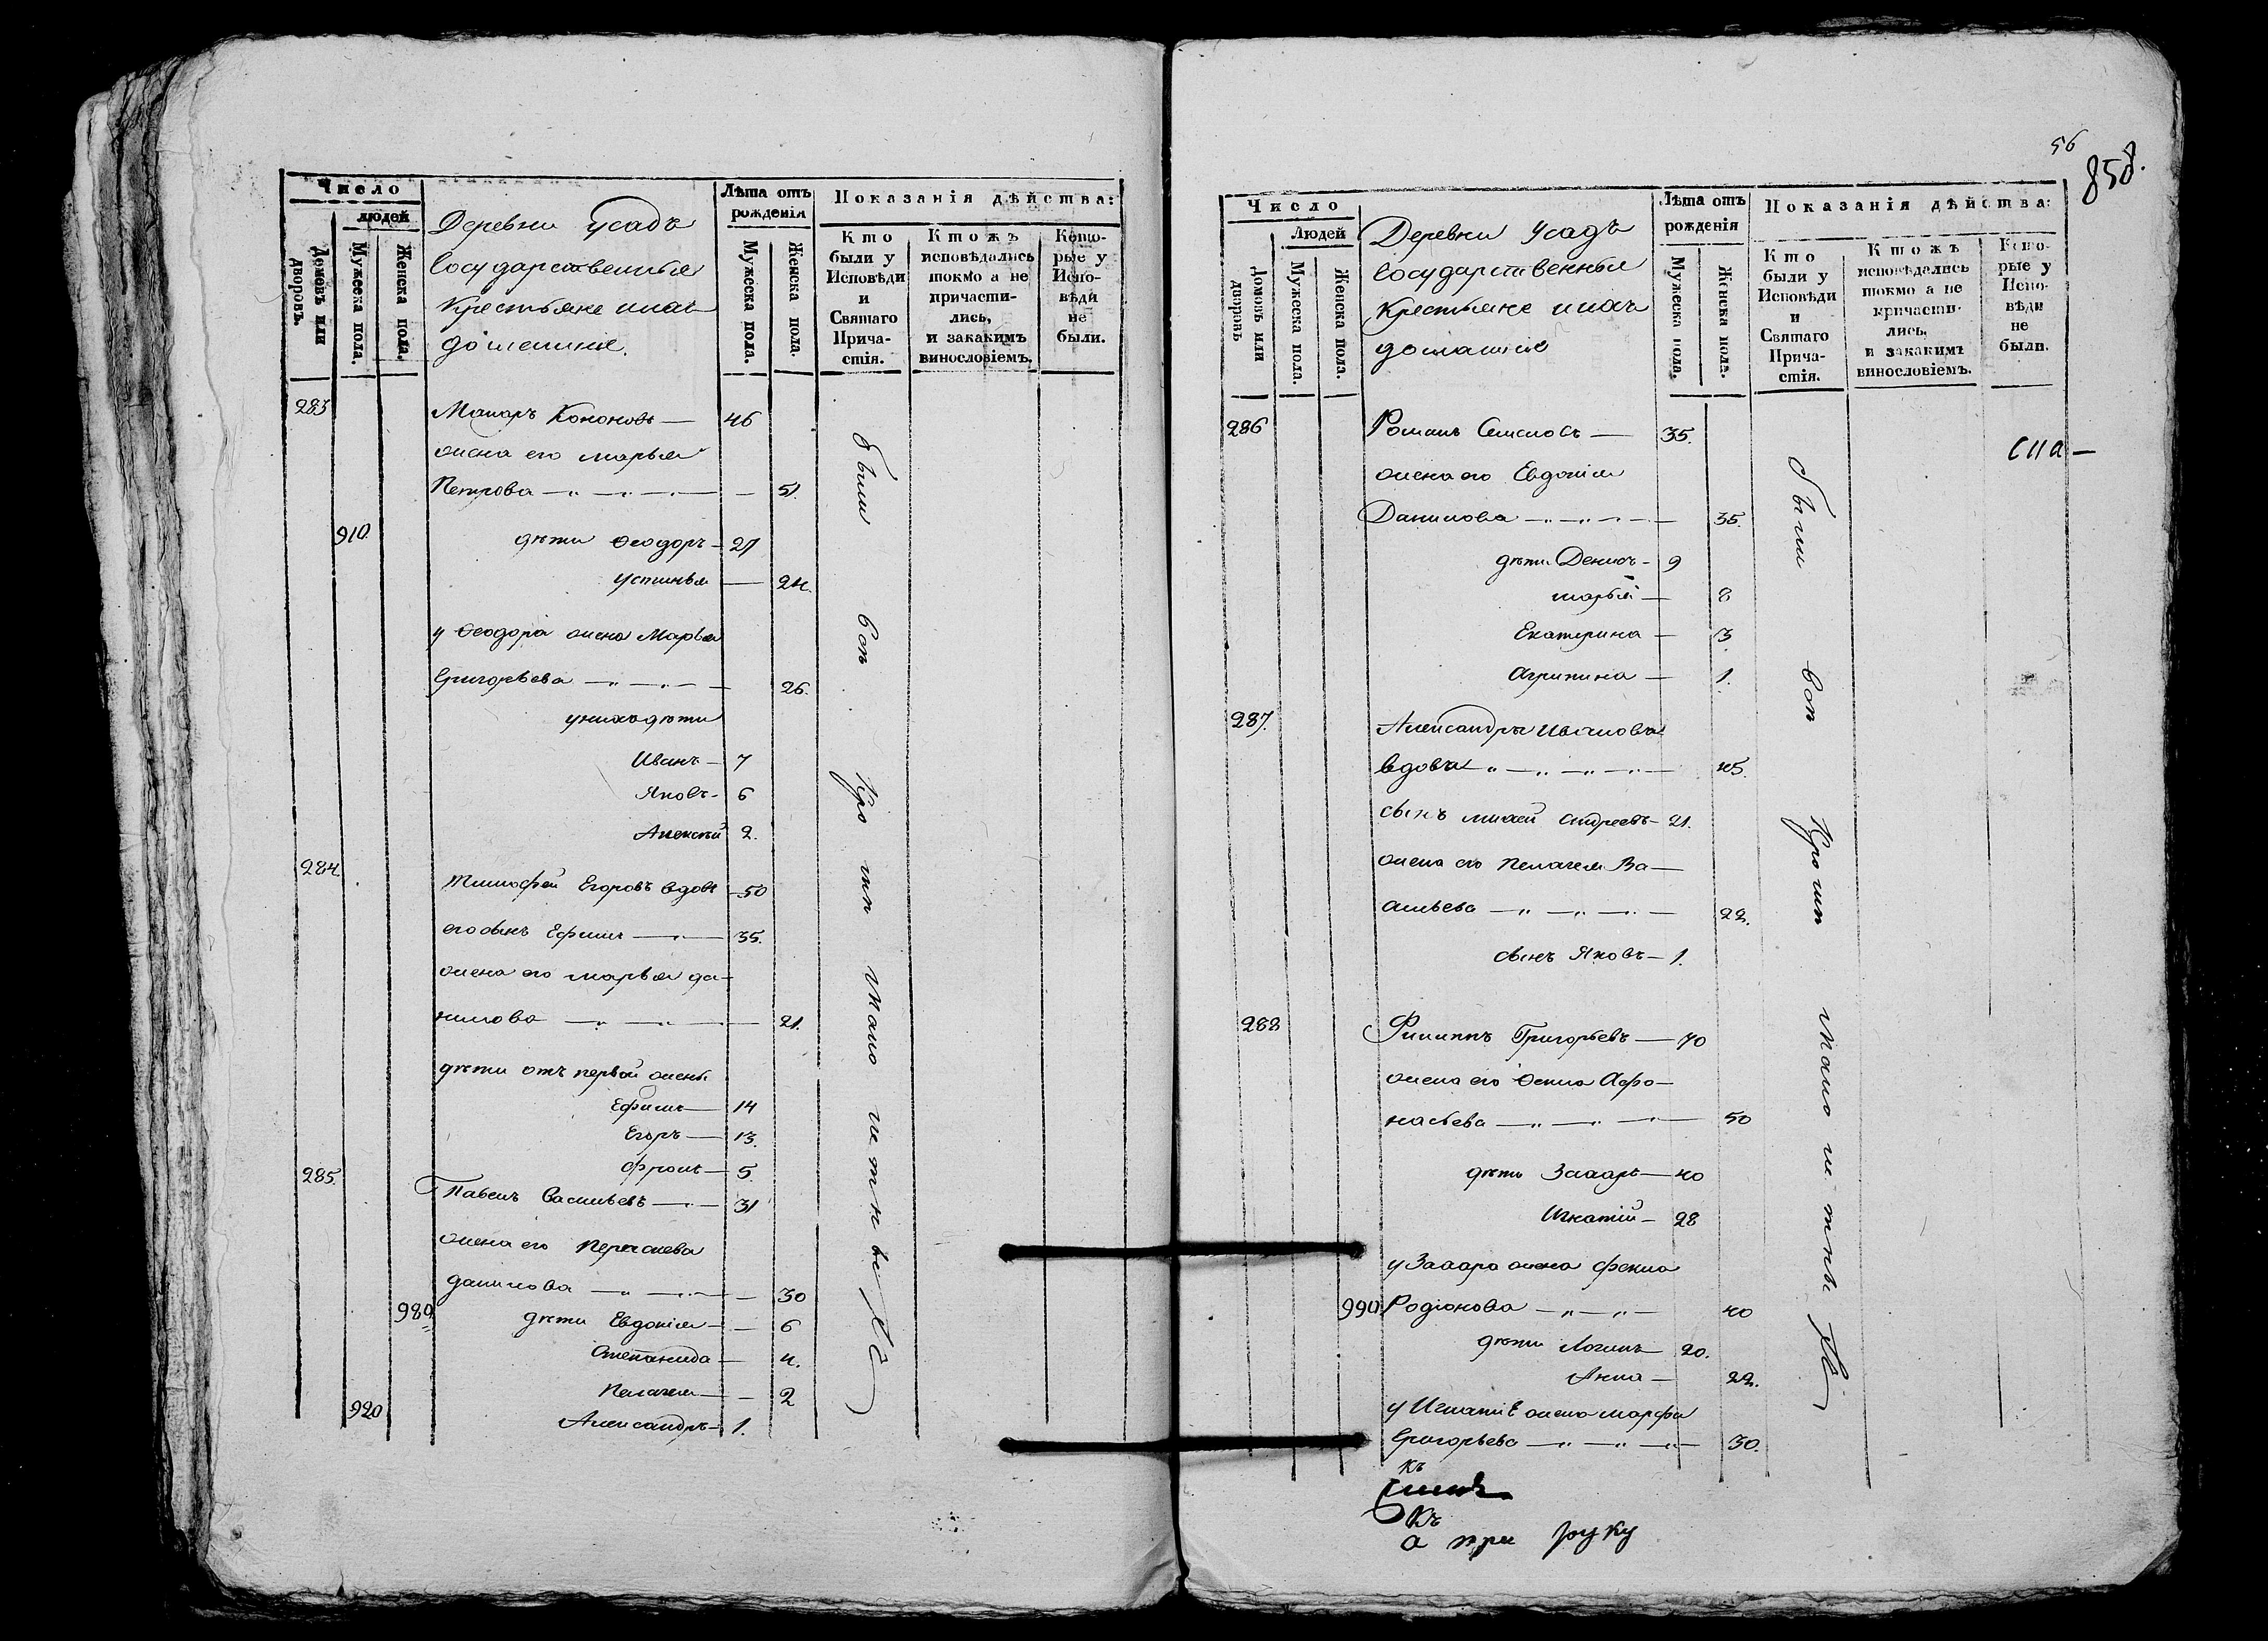 Число
людей
Домовъ или дворовъ.
Мужеска пола.
Женска пола.
Деревни Усадъ
Государственныя
крестьяне и ихъ
домашніе.
Лѣта отъ рожденія
Мужеска пола.
Женска пола.
Показанія дѣйства:
Кто были у Исповѣди и Святаго Прича-стія.
Ктожъ исповѣдались токмо а не причасти-лись, и закакимъ винословіемъ.
Кото-рые у Испо-вѣди не были.
283
Макаръ Кононовъ — 46
жена его Марья
Петрова — 51.
910
дѣти Ѳеодоръ — 27
Устинья — 24.
у Ѳеодора жена Марья
Григорьева — 26.
у нихъ дѣти
Иванъ — 7
Яковъ — 6
Алексѣй 2.
284
Тимофей Егоровъ вдовъ — 50
его сынъ Ефимъ — 35.
жена его Марья Да-
нилова — 21.
дѣти отъ первой жены
Ефимъ — 14
Егоръ — 13.
Фролъ — 5.
285.
Павелъ Васильевъ — 31
жена его
Данилова — 30
980
дѣти Евдокія — 6
Степанида — 4.
Пелагея — 2
920
Александръ — 1.
были
вси
кро
мѣ
мало
лѣтнывъ
56
858.
Число
Людей
Домовъ или дворовъ
Мужеска пола.
Женска пола.
Деревни Усадъ
Государственныя
крестьяне и ихъ
домашніе
Лѣта отъ рожденія
Мужеска пола.
Женска пола.
Показанія дѣйства:
Кто были у Исповѣди и Святаго Прича-стія.
Ктожъ исповѣдались токмо а не причасти-лись, и закакимъ винословіемъ.
Кото-рые у Испо-вѣди не были.
286
Романъ Семеновъ — 35.
жена его Евдокія
Данилова — 35.
дѣти Денисъ — 9
Марья — 8
Екатерина — 3
Агрипина — 1.
287.
Александра Иванова
вдова — 45.
сынъ Михей Андреевъ — 21.
жена его Пелагея Ва-
сильева — 22.
сынъ Яковъ — 1.
288
Филиппъ Григорьевъ — 70
жена его Ѳекла Афо-
насьева — 50
дѣти Захаръ — 40
Игнатій — 28
у Захара жена Фекла
990
Родіонова — 40
дѣти Логинъ — 20.
Анна — 22.
у Игнатія жена Марфа
Григорьева — 30.
были
вси
кромѣ
мало
лѣтнъ
къ
къ
а при руку